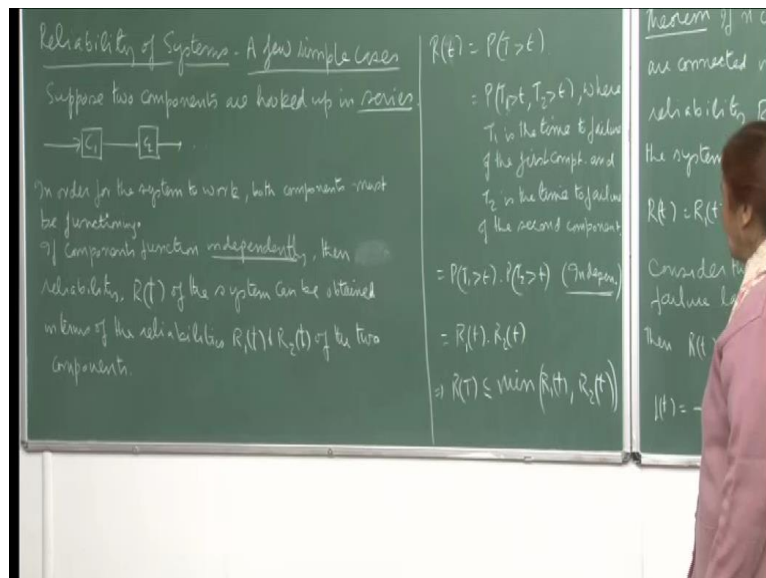 Reliability of Systems - A few simple cases
Suppose two components are hooked up in series.
C₁ C₂ ...
In order for the system to work, both components must
be functioning.
If Components function independently, then
reliability, R(t) of the system can be obtained
in terms of the reliabilities R₁(t) & R₂(t) of the two
components.
R(t) = P(T>t)
= P(T₁>t, T₂>t), where
T₁ is the time to failure
of the first compt. and
T₂ is the time to failure
of the second component.
= P(T₁>t). P(T₂>t) (Indepen.)
= R₁(t). R₂(t)
⇒ R(T) ≤ min(R₁(t), R₂(t))
Theorem If n
are connected
reliability
the system
R(t) = R₁(t)
Consider
failure
Then R(t)
f(t) = -